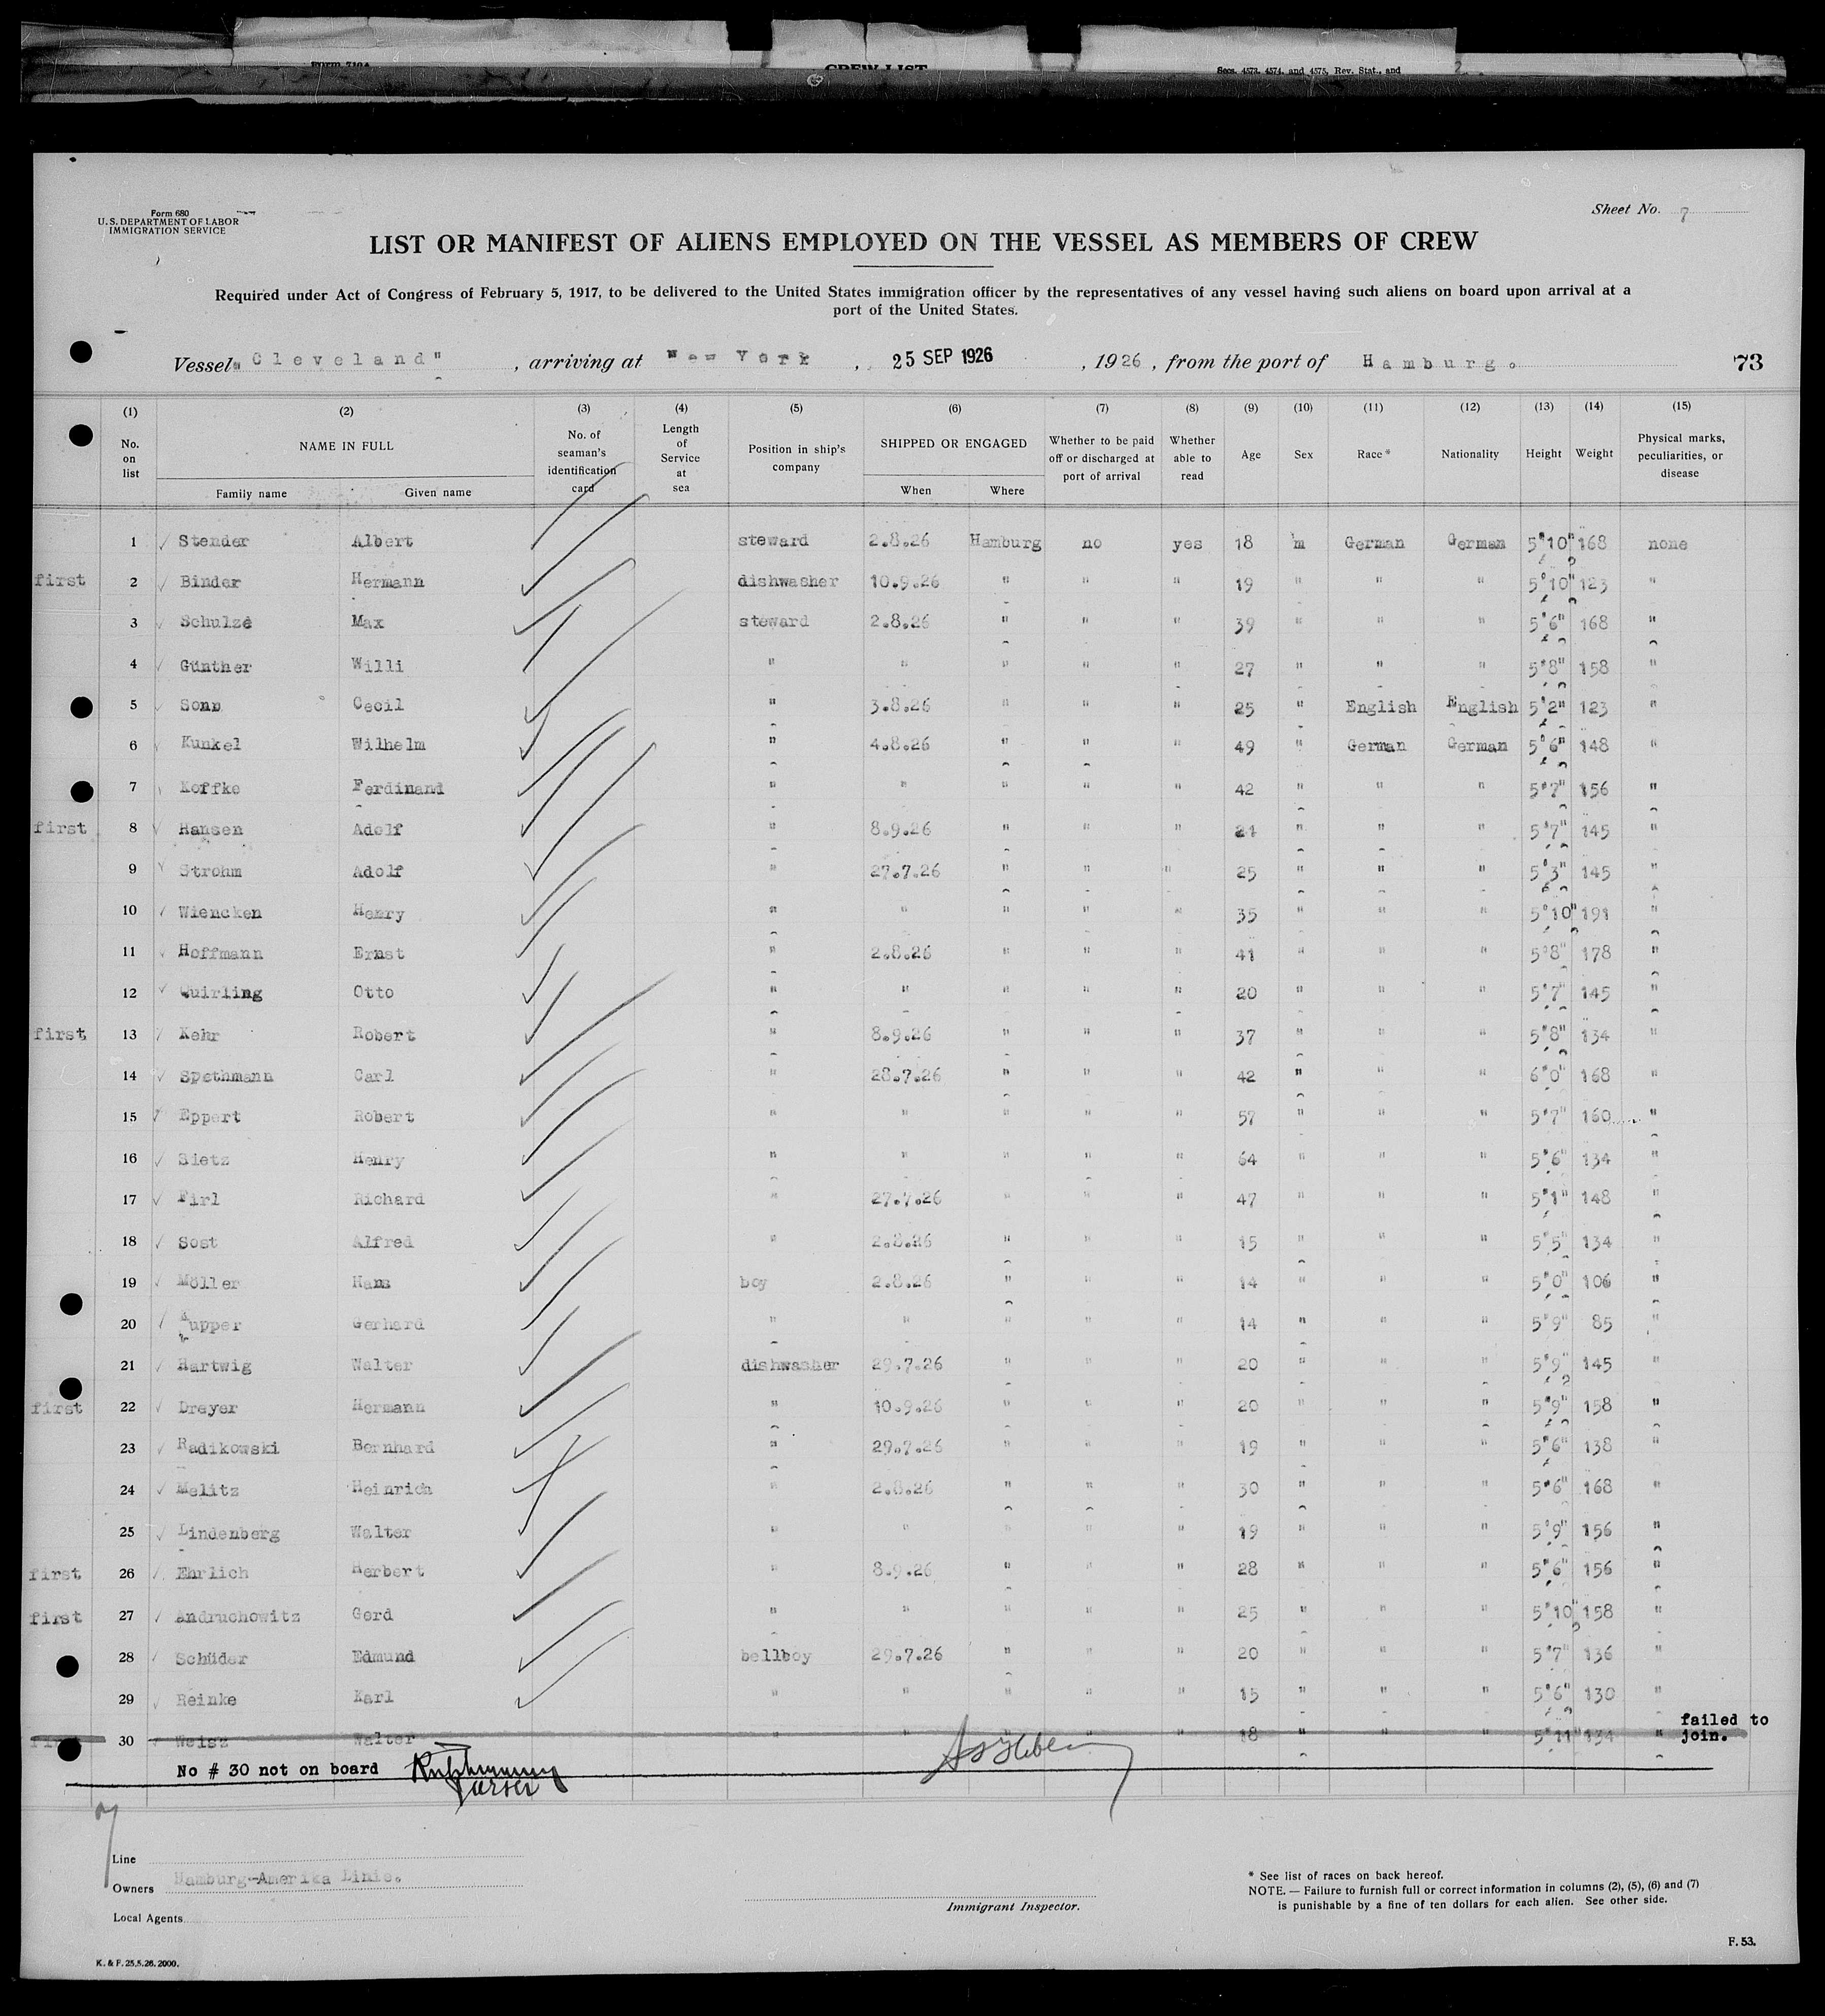 Form 710A
CREW LIST
Secs. 4573, 4574, and 4575, Rev. Stat., and
Form 680
U. S. DEPARTMENT OF LABOR
IMMIGRATION SERVICE
Sheet No. 7
LIST OR MANIFEST OF ALIENS EMPLOYED ON THE VESSEL AS MEMBERS OF CREW
Required under Act of Congress of February 5, 1917, to be delivered to the United States immigration officer by the representatives of any vessel having such aliens on board upon arrival at a
port of the United States.
Vessel "Cleveland", arriving at New York, 25 SEP 1926, 1926, from the port of Hamburg. 73
(1) (2) (3) (4) (5) (6) (7) (8) (9) (10) (11) (12) (13) (14) (15)
No. on list NAME IN FULL Family name Given name No. of seaman's identification card Length of Service at sea Position in ship's company SHIPPED OR ENGAGED When Where Whether to be paid off or discharged at port of arrival Whether able to read Age Sex Race* Nationality Height Weight Physical marks, peculiarities, or disease
1 Stender Albert steward 2.8.26 Hamburg no yes 18 m German German 5'10" 168 none
first 2 Binder Hermann dishwasher 10.9.26 " " " 19 " " " 5'10" 123 "
3 Schulze Max steward 2.8.26 " " " 39 " " " 5'6" 168 "
4 Günther Willi " " " " " 27 " " " 5'8" 158 "
5 Sonn Cecil " 3.8.26 " " " 25 " English English 5'2" 123 "
6 Kunkel Wilhelm " 4.8.26 " " " 49 " German German 5'6" 148 "
7 Koffke Ferdinand " " " " " 42 " " " 5'7" 156 "
first 8 Hansen Adolf " 8.9.26 " " " 21 " " " 5'7" 145 "
9 Strohm Adolf " 27.7.26 " " " 25 " " " 5'3" 145 "
10 Wiencken Henry " " " " " 35 " " " 5'10" 191 "
11 Hoffmann Ernst " 2.8.26 " " " 41 " " " 5'8" 178 "
12 Quirling Otto " " " " " 20 " " " 5'7" 145 "
first 13 Kehr Robert " 8.9.26 " " " 37 " " " 5'8" 134 "
14 Spethmann Carl " 28.7.26 " " " 42 " " " 6'0" 168 "
15 Eppert Robert " " " " " 57 " " " 5'7" 160 "
16 Sietz Henry " " " " " 64 " " " 5'6" 134 "
17 Firl Richard " 27.7.26 " " " 47 " " " 5'1" 148 "
18 Sost Alfred " 2.8.26 " " " 15 " " " 5'5" 134 "
19 Möller Hans boy 2.8.26 " " " 14 " " " 5'0" 106 "
20 Kupper Gerhard " " " " " 14 " " " 5'9" 85 "
21 Hartwig Walter dishwasher 29.7.26 " " " 20 " " " 5'9" 145 "
first 22 Dreyer Hermann " 10.9.26 " " " 20 " " " 5'9" 158 "
23 Radikowski Bernhard " 29.7.26 " " " 19 " " " 5'6" 138 "
24 Melitz Heinrich " 2.8.26 " " " 30 " " " 5'6" 168 "
25 Lindenberg Walter " " " " " 19 " " " 5'9" 156 "
first 26 Ehrlich Herbert " 8.9.26 " " " 28 " " " 5'6" 156 "
first 27 Andruchowitz Gerd " " " " " 25 " " " 5'10" 158 "
28 Schüder Edmund bellboy 29.7.26 " " " 20 " " " 5'7" 136 "
29 Reinke Karl " " " " " 15 " " " 5'6" 130 "
first 30 Weisz Walter " " " " " 18 " " " 5'11" 134 " failed to join.
No # 30 not on board
Purser
Line
Owners Hamburg-Amerika Linie.
Local Agents
Immigrant Inspector.
* See list of races on back hereof.
NOTE. — Failure to furnish full or correct information in columns (2), (5), (6) and (7)
is punishable by a fine of ten dollars for each alien. See other side.
F. 53.
K. & F. 25.5.26. 2000.